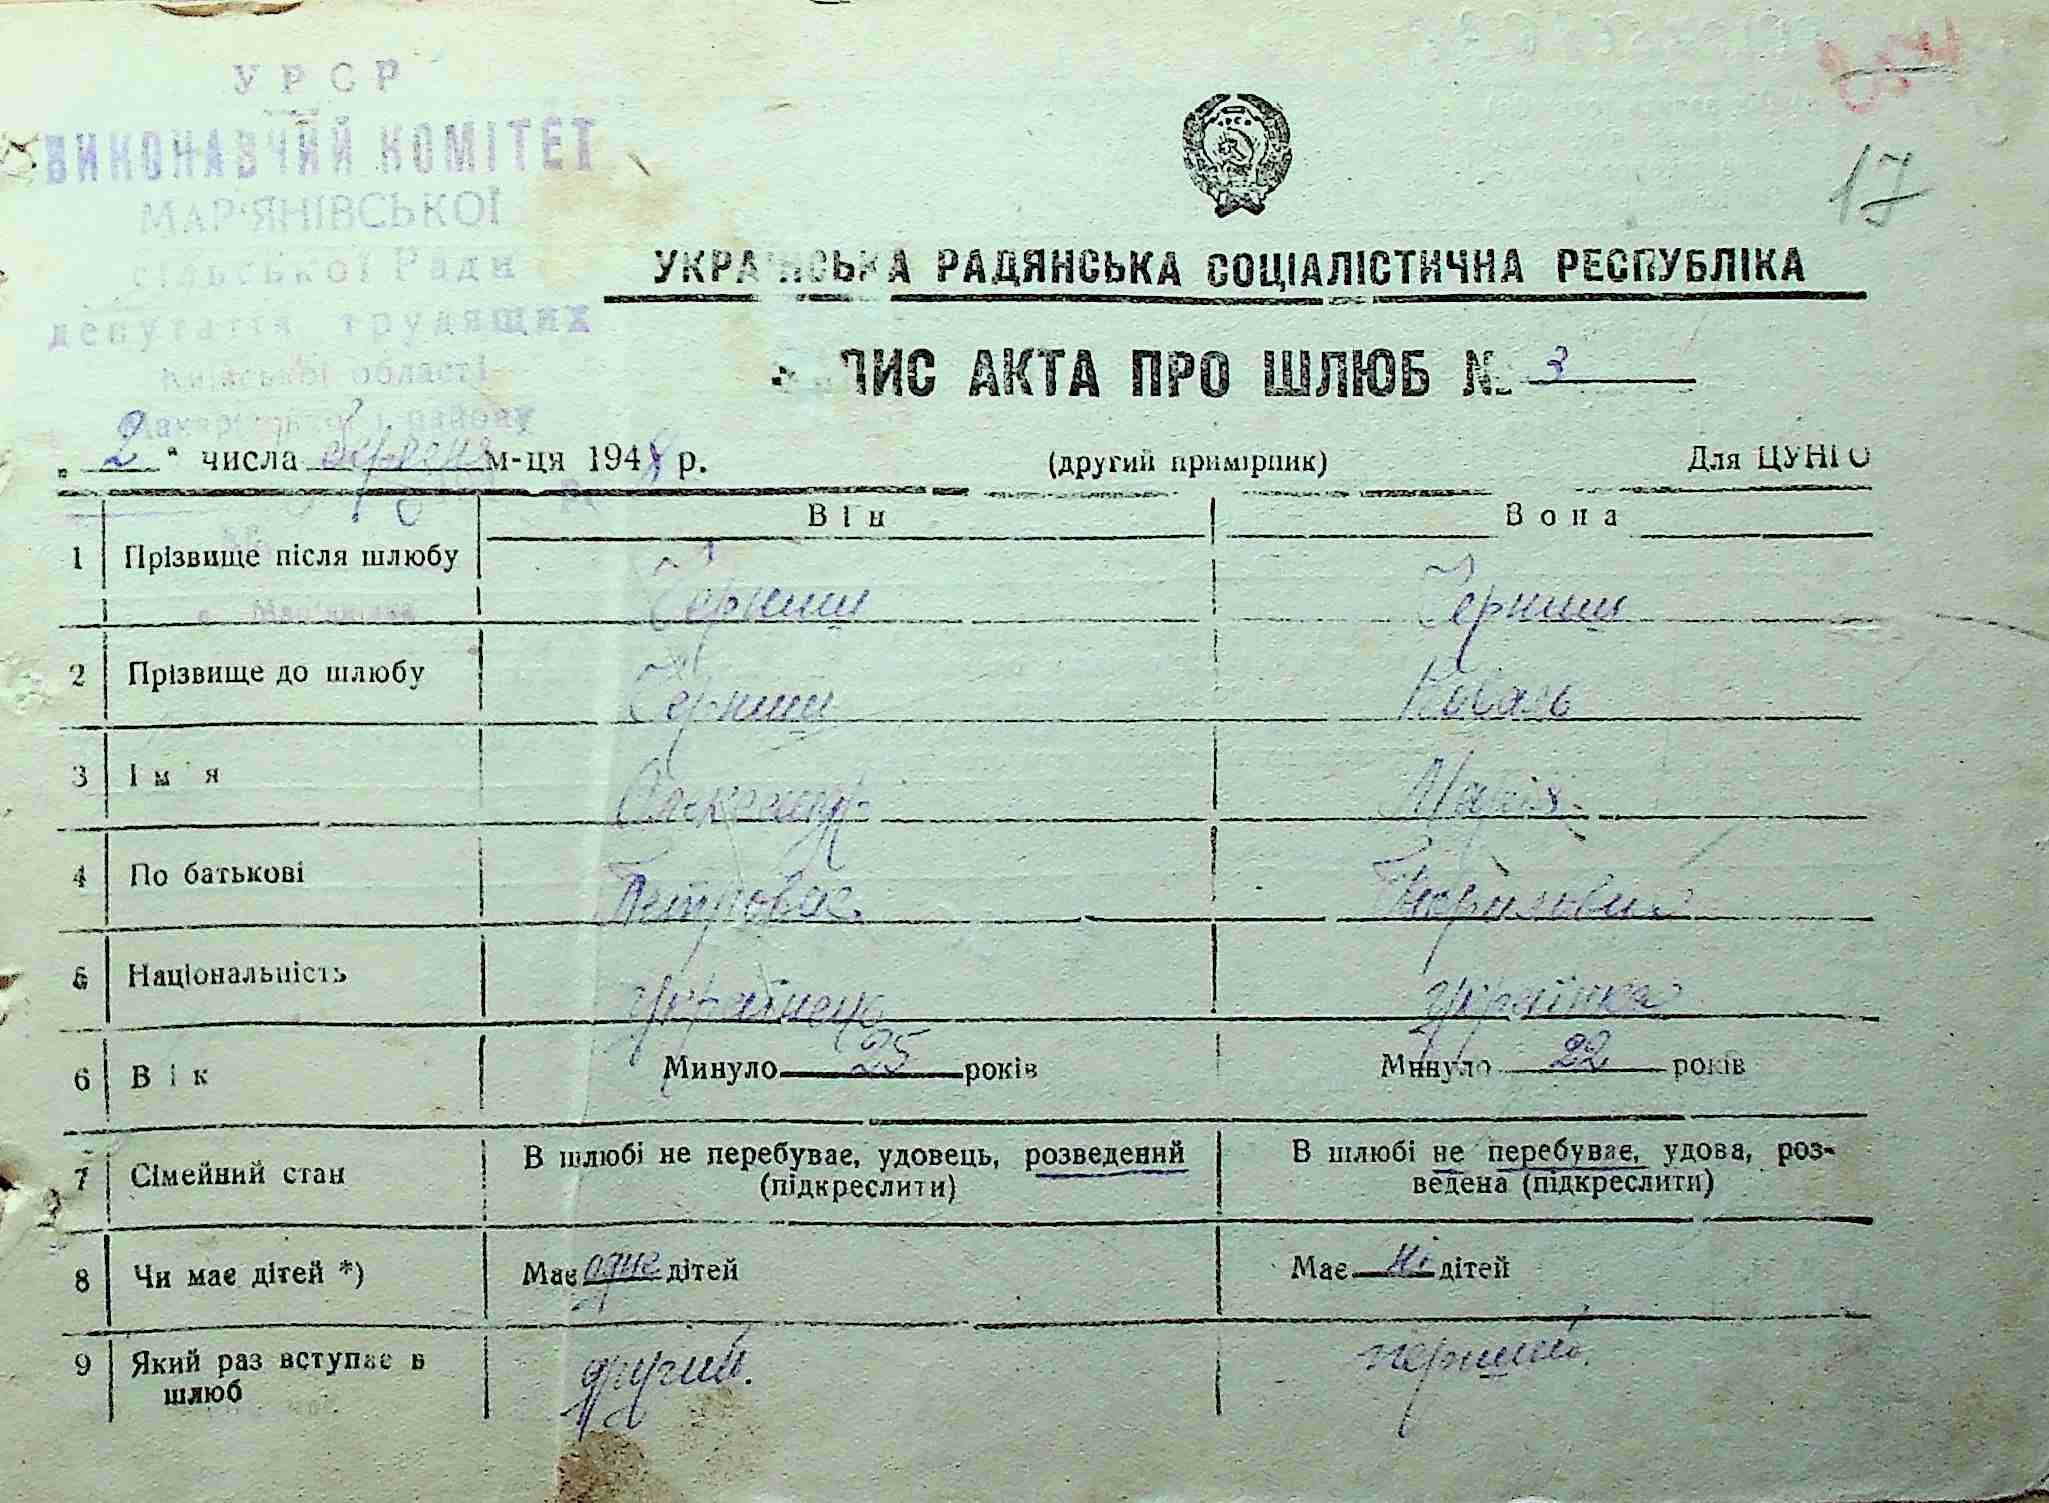 УРСР
ВИКОНАВЧИЙ КОМІТЕТ
МАР'ЯНІВСЬКОЇ
сільської Ради
депутатів трудящих
Київської області
Макарівського району
17
УКРАЇНСЬКА РАДЯНСЬКА СОЦІАЛІСТИЧНА РЕСПУБЛІКА
ПИС АКТА ПРО ШЛЮБ № 3
„ 2 " числа березня м-ця 1948 р. (другий примірник) Для ЦУНГО
Він Вона
1 Прізвище після шлюбу Черниш Черниш
с. Мар'янівка
2 Прізвище до шлюбу Черниш Коваль
3 Ім'я Олександр Марія
4 По батькові Петрович
5 Національність українець українка
6 Вік Минуло 25 років Минуло 22 років
7 Сімейний стан В шлюбі не перебуває, удовець, розведений (підкреслити) В шлюбі не перебуває, удова, роз-
ведена (підкреслити)
8 Чи має дітей *) Має одне дітей Має ні дітей
9 Який раз вступає в шлюб другий. перший.